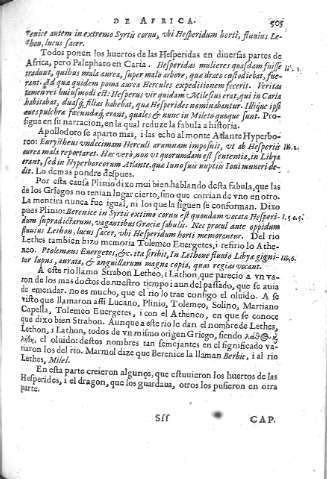 DE AFRICA. 505
renice autem in extremo Syrtis cornu, vbi Hesperidum horti, fluuius Le-
thon, lucus sacer.
Todos ponen los huertos de las Hesperidas en diuersas partes de
Africa, pero Palephato en Caria. Hesperidas mulieres quasdam fuisse
tradunt, quibus mala aurea, super mala arbore, quæ draco custodiebat, fue-
rant: ad quæ quidem poma aurea Hercules expeditionem fecerit. Veritas
tamen res huiusmodi est: Hesperus vir quidam Milesius erat, qui in Caria
habitabat, duasq; filias habebat, quæ Hesperides nominabantur. Illique ipsi
oues pulchræ fœcundæq; erant, quales & nunc in Mileto quoque sunt. Pro-
sigue en su narracion, en la qual reduze la fabula a historia.
Apollodoro se aparto mas, i las echo al monte Atlante Hyperbo-
reo: Eurystheus vndecimum Herculi ærumnam imposuit, vt ab Hesperie
aurea mala reportaret. Hæc verò, non vt quorundam est sententia, in Libya
erant, sed in Hyperboreorum Atlante, quæ Iunosuis nuptijs Ioui muneri de-
dit. Lo demas pondre despues.
Por esta causa Plinio dixo mui bien hablando desta fabula, que las
de los Griegos no tenian lugar cierto, sino que corrian de vno en otro.
La mentira nunca fue igual, ni los que la siguen se conforman. Dixo
pues Plinio: Berenice in Syrtis extimo cornu est quondam vocata Hesperi-
dum supradictarum, vagantibus Græciæ fabulis. Nec procul ante oppidum
fluuius Lethon, lucus sacer, vbi Hesperidum horti memorantur. Del rio
Lethes tambien hizo memoria Tolemeo Energetes, i refirio lo Athe-
neo. Ptolemæus Euergetes, &c. ita scribit, In Lethone fluuio Libya gigni-
tor lupus, aurata, & anguillarum magna copia, quas regias vocant.
A este rio llama Strabon Letheo, i Lathon, que parecio a vn va-
ron de los mas doctos de nuestro tiempo i aun del passado, que se auia
de emendar. no es mucho, que el rio lo trae contigo el oluido. A se
visto que llamaron assi Lucano, Plinio, Tolemeo, Solino, Martiano
Capella, Tolemeo Euergetes, i con el Atheneo, en que se conoce
que dixo bien Strabon. Aunque a este rio le dan el nombre de Lethes,
Lethon, i Lathon, todos de vn mismo origen Griego, siendo
el oluido: destos nombres tan semejantes en el significado va-
riaron los del rio. Marmol dize que Berenice la llaman Berbic, i al rio
Lethes, Milel.
En esta parte creieron algunos, que estuuieron los huertos de las
Hesperides, i el dragon, que los guardaua, otros los pusieron en otra
parte.
Sss CAP.